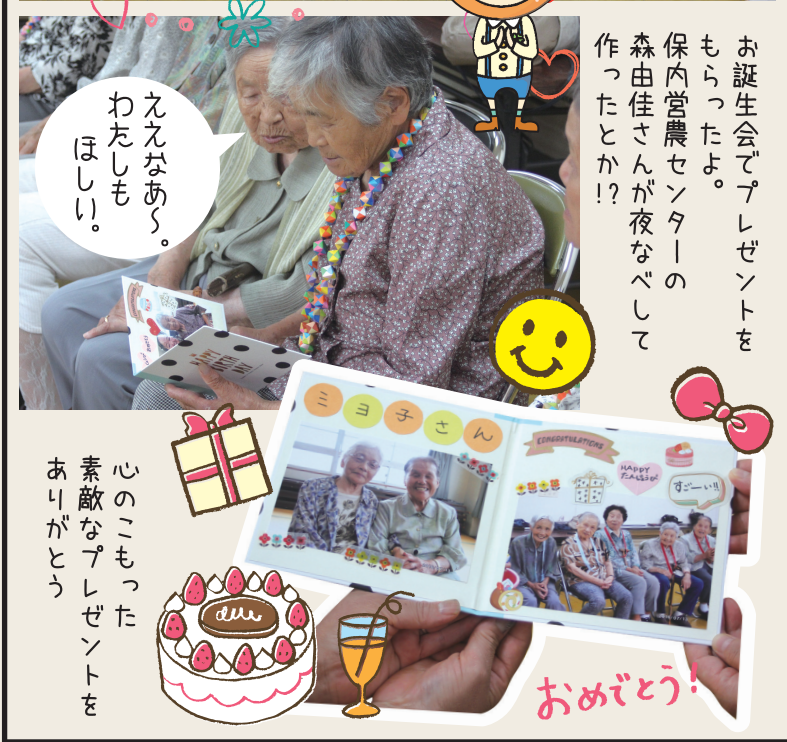 お誕生会でプレゼントを
もらったよ。
保内営農センターの
森由佳さんが夜なべして
作ったとか!?
ええなあ〜。
わたしも
ほしい。
HAPPY
BIRTHDAY
ミヨ子さん
CONGRATULATIONS
HAPPY
たんじょうび
すごーい!!
心のこもった
素敵なプレゼントを
ありがとう
おめでとう!